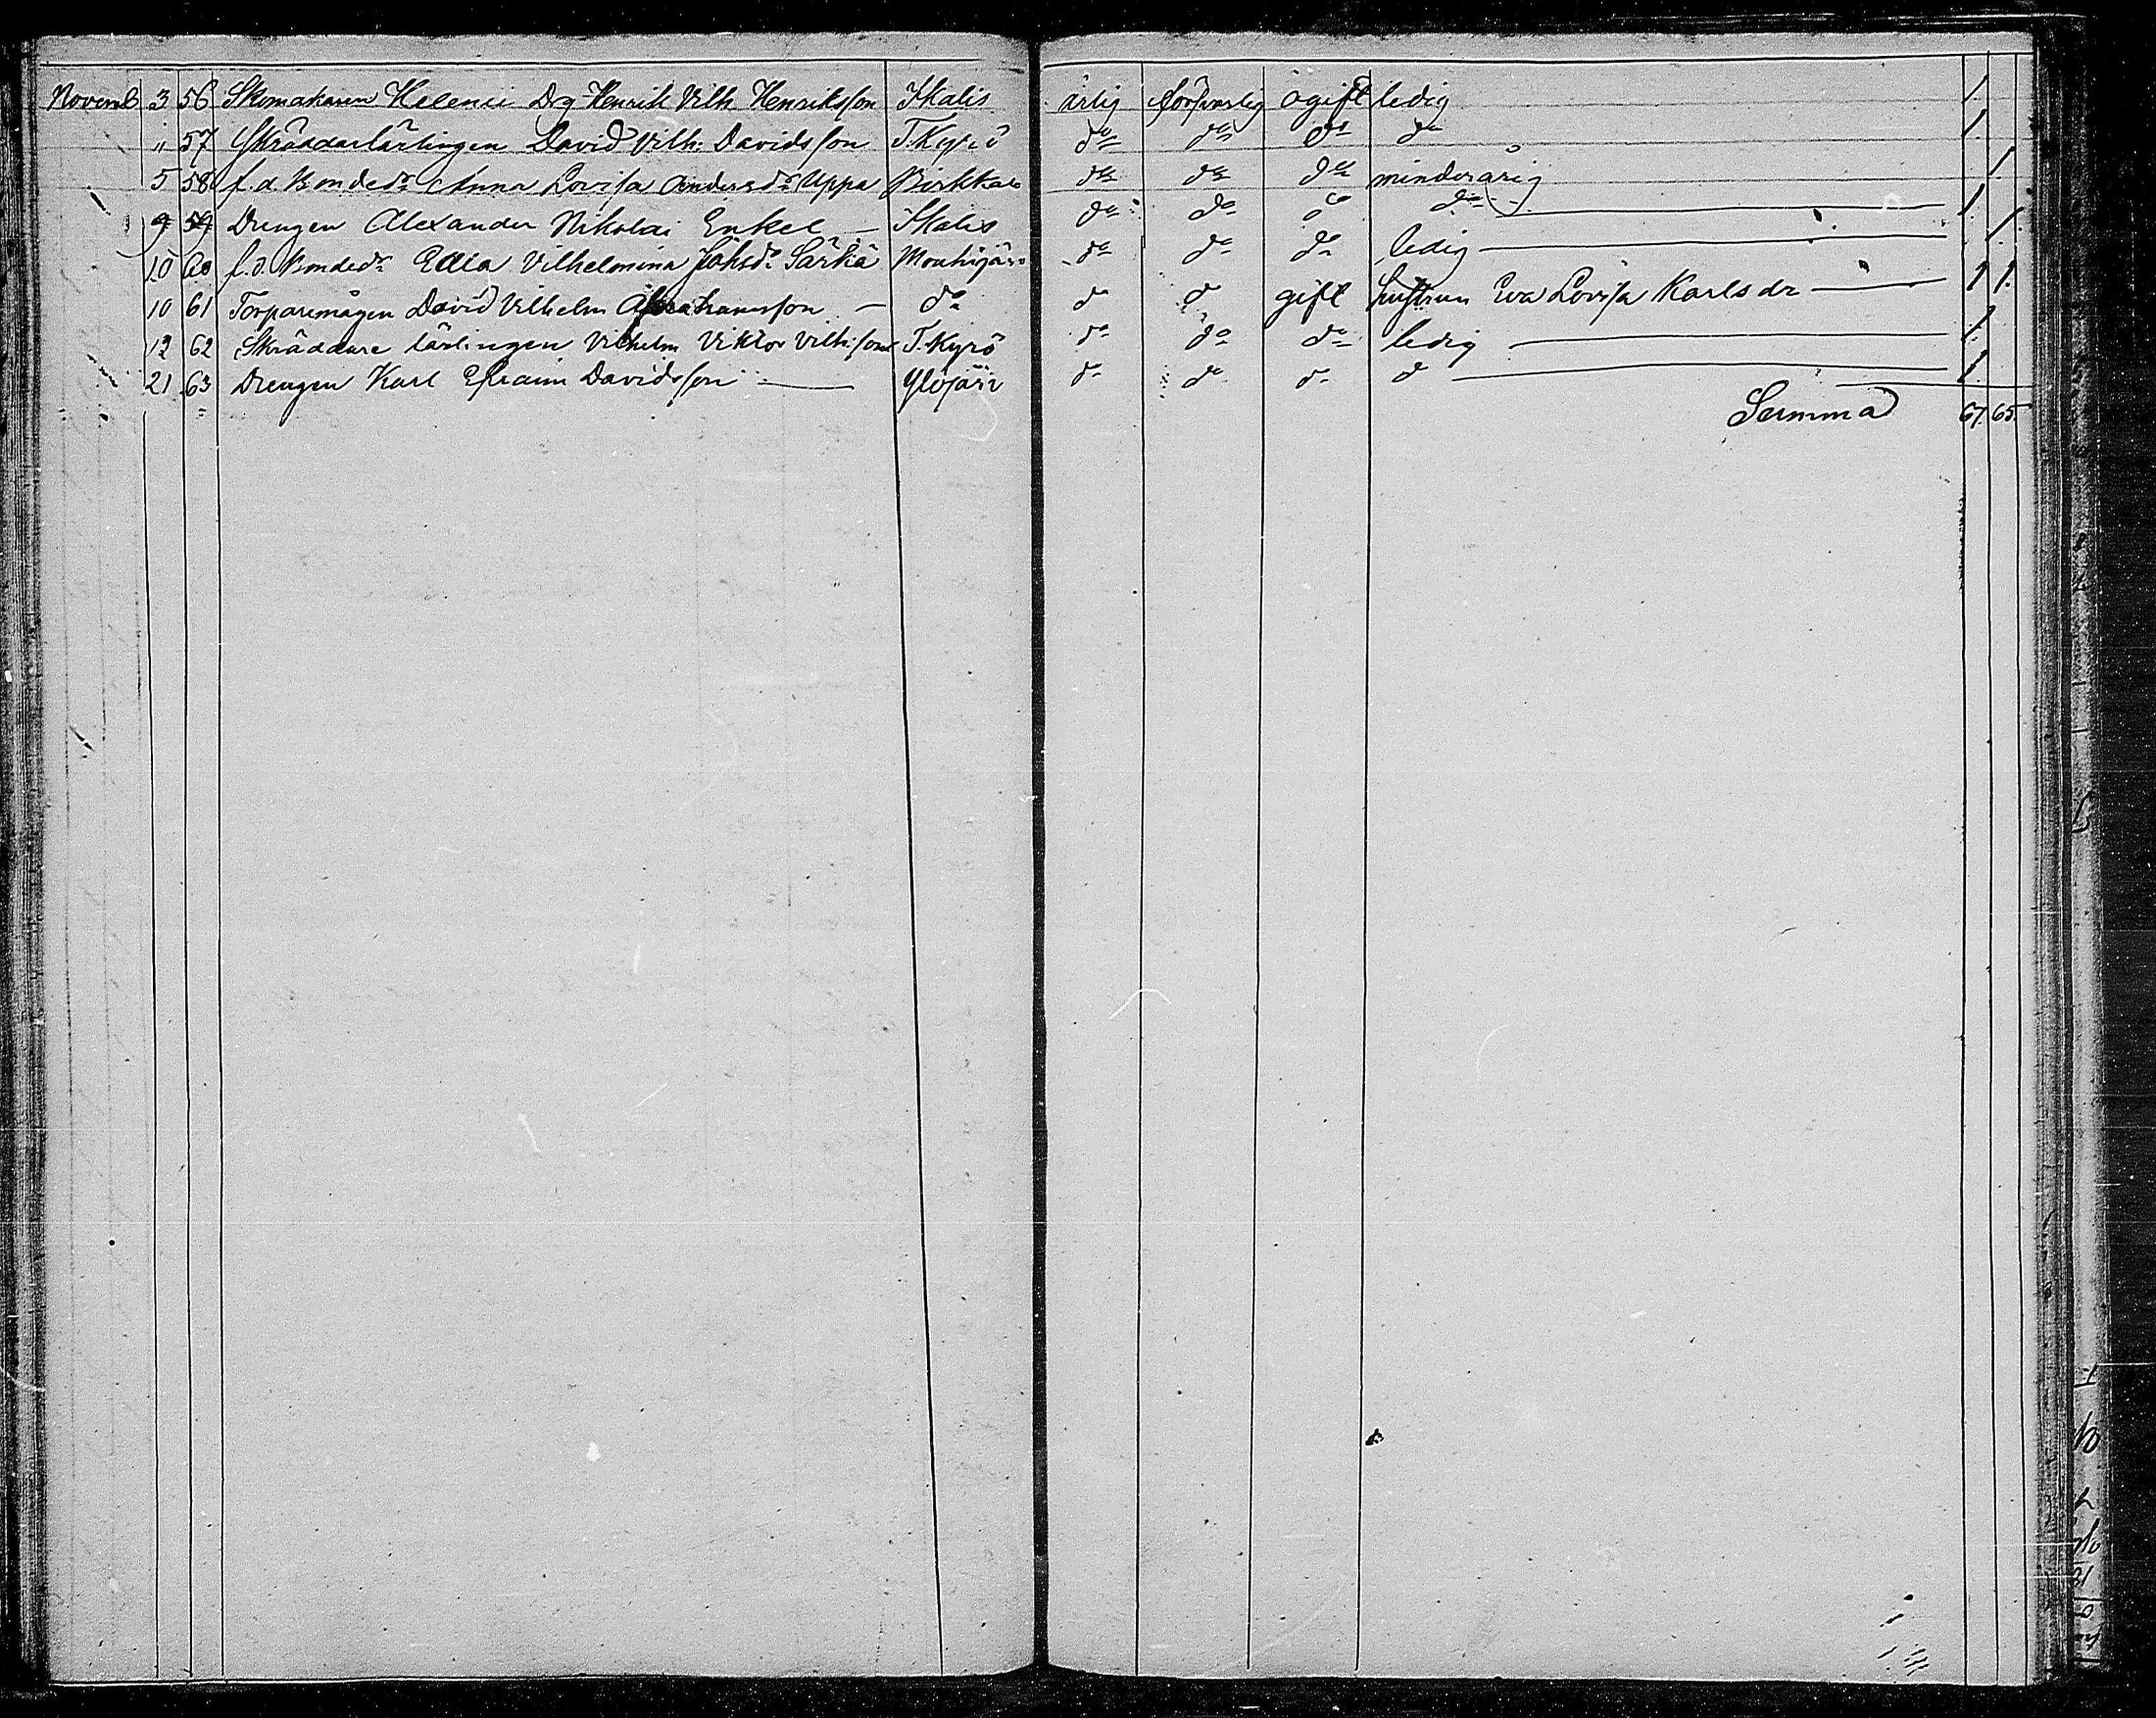 Novemb 3 56 Skomakaren Helenii Drg Henrik Vilh. Henriksson Ikalis ärlig försvarlig ogift ledig 1.
" 57 Skräddarlärlingen David Vilh: Davidsson T.Kyrö do do do do 1.
5 58 f.d. Bondedr Anna Lovisa Andersdr Uppa Birkkala do do do minderårig 1.
9 59 Drengen Alexander Nikolai Enkel — Ikalis do do do do — 1.
10 60 f.d. Bondedr Edla Vilhelmina Johsdr Särkä Mouhijärvi do do do ledig — 1.
10 61 Torparemågen David Vilhelm Abrahamsson — do do do gift hustrun Eva Lovisa Karlsdr — 1 1.
12 62 Skräddare lärlingen Vilhelm Viktor Vilh:son T.Kyrö do do do ledig — 1.
21 63 Drengen Karl Efraim Davidsson — Ylöjärv do do do do — 1.
Summa 67. 65.